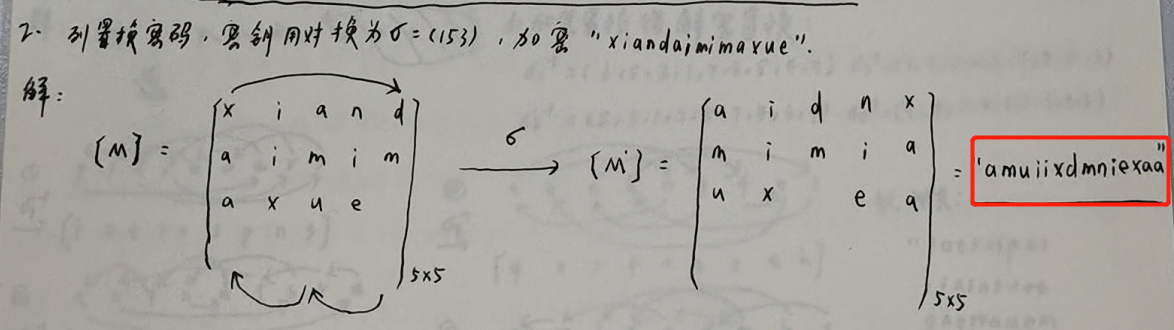 2. 列置换密码,密钥用对换为σ=(153),加密"xiandaimimaxue".
解:
[M] = [x i a n d
a i m i m
a x u e ]5×5
σ
[M'] = [a i d n x
m i m i a
u x e a ]5×5
= 'amuiixdmniexaa"